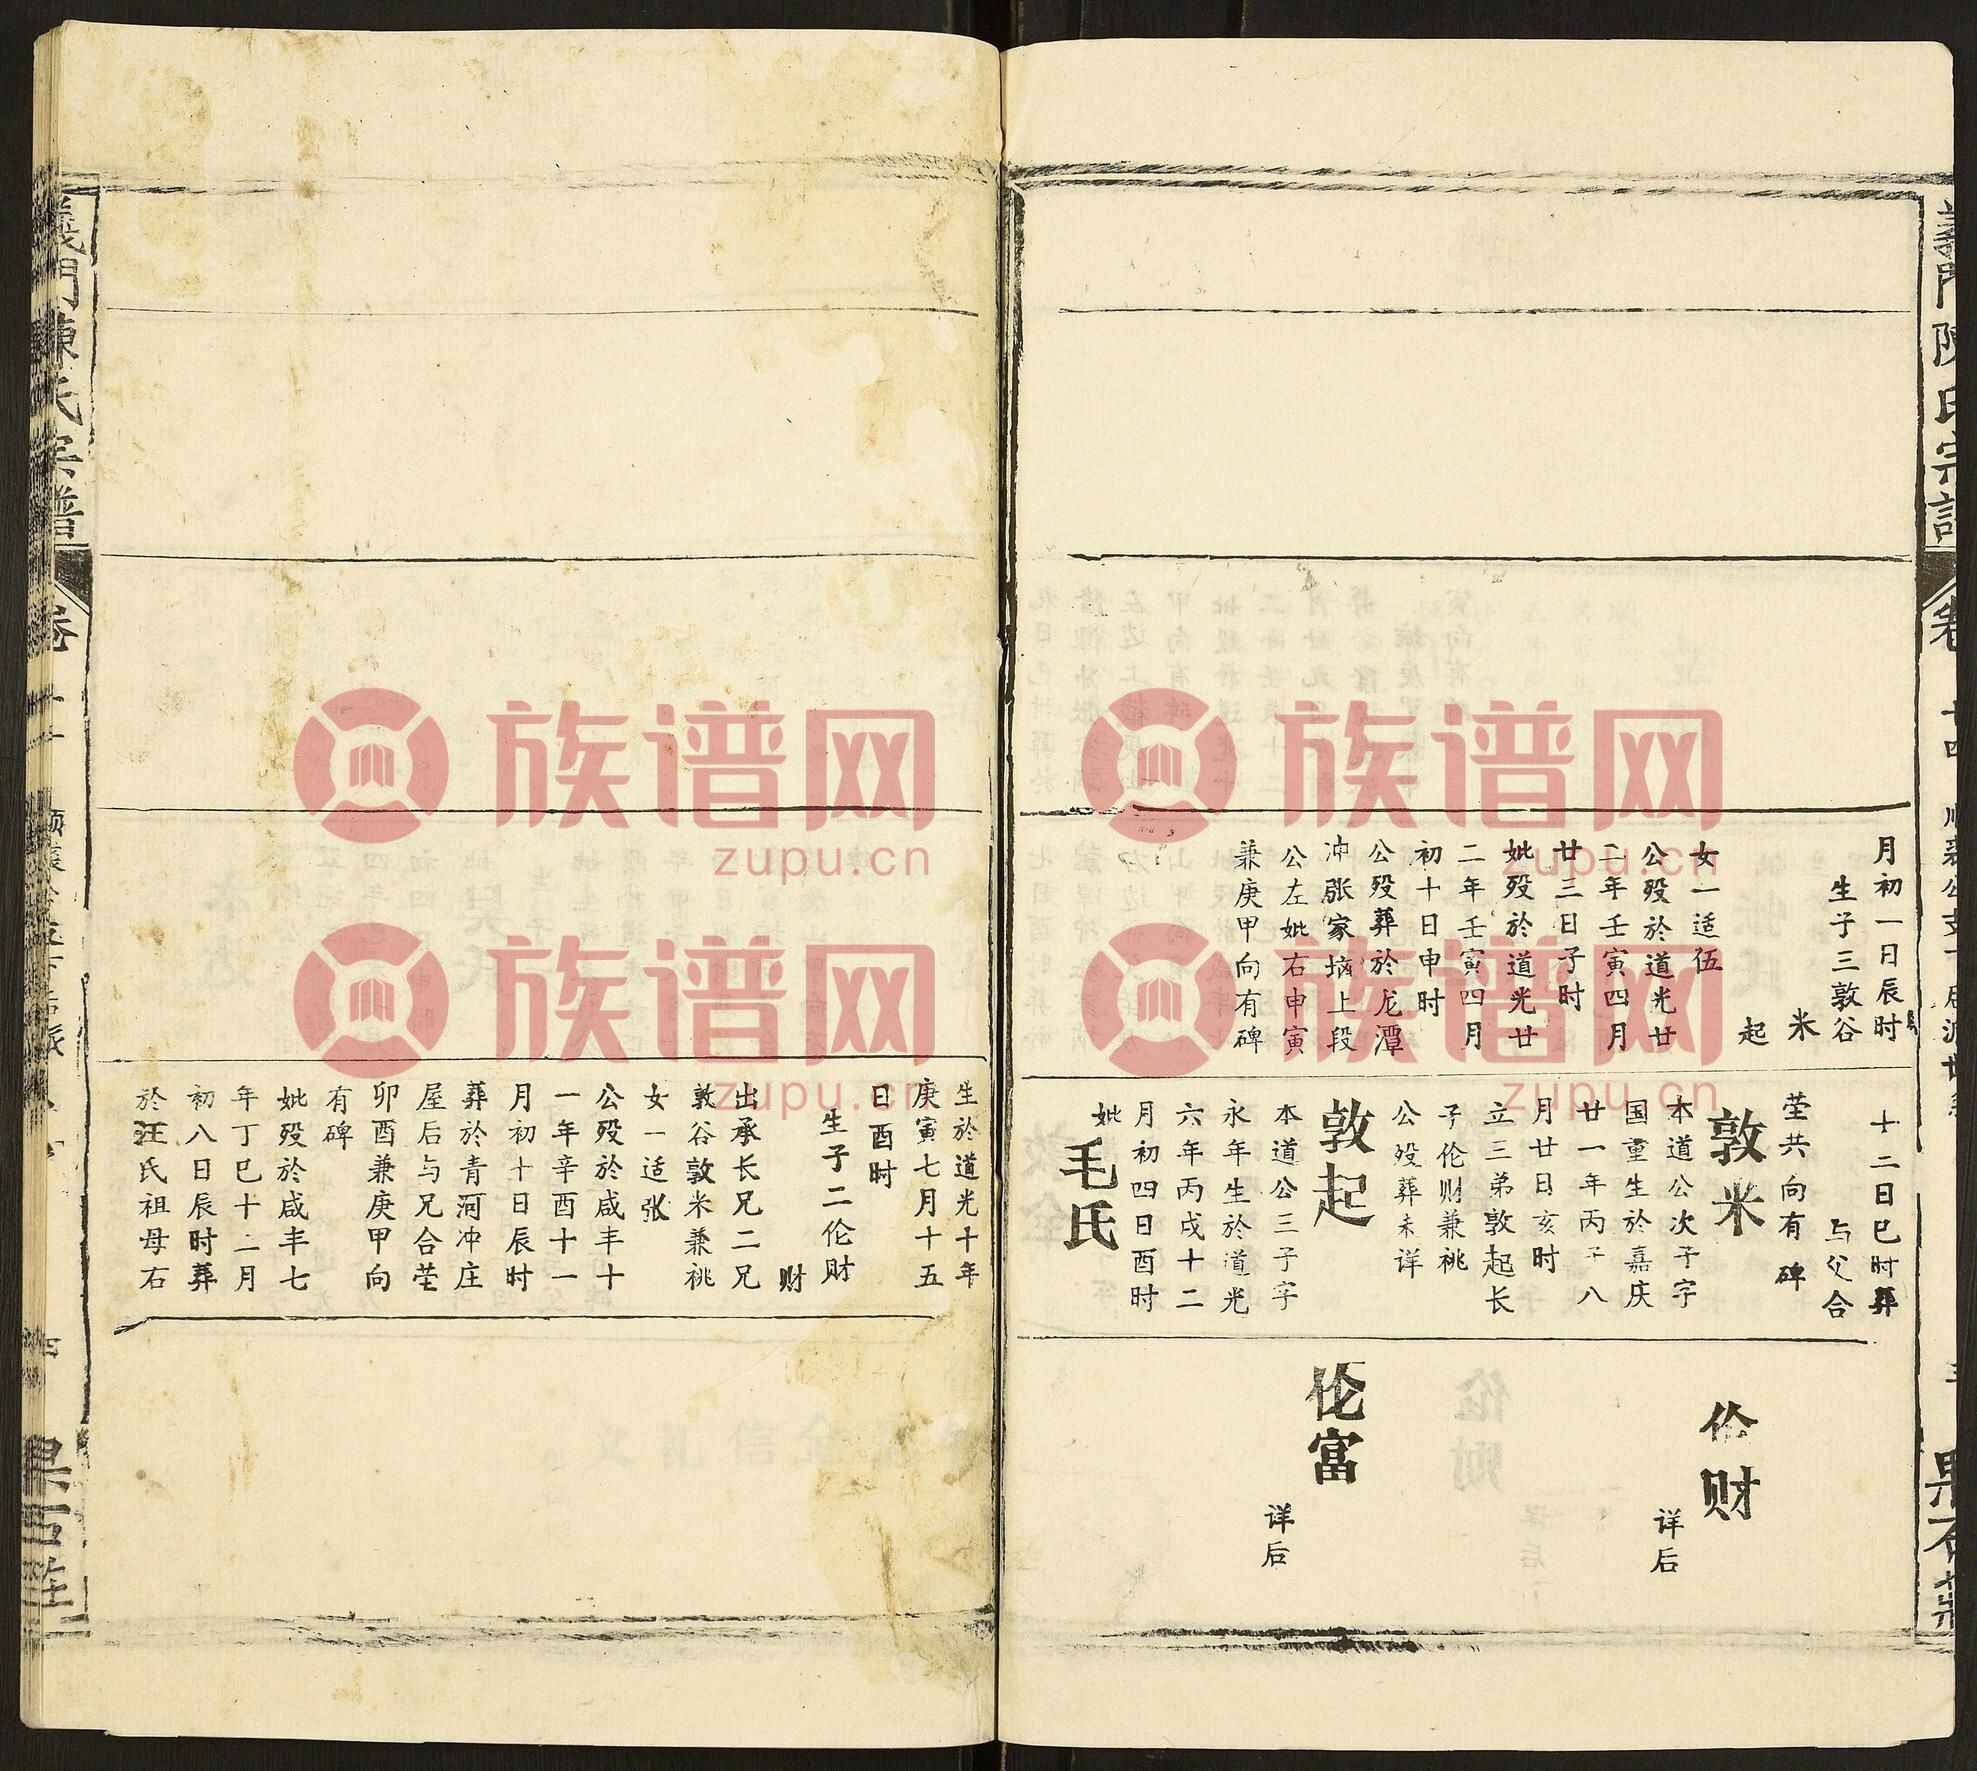 義門陳氏宗譜
卷
十四
果石莊
月初一日辰时
生子三敦谷
米
起
女一适伍
公殁於道光廿
二年壬寅四月
廿三日子时
妣殁於道光廿
二年壬寅四月
初十日申时
公殁葬於龙潭
冲张家墒上段
公左妣右申寅
兼庚甲向有碑
十二日巳时葬
与父合
茔共向有碑
敦米
本道公次子字
国重生於嘉庆
廿一年丙子八
月廿日亥时
立三弟敦起长
子伦财兼祧
公殁葬未详
敦起
本道公三子字
永年生於道光
六年丙戌十二
月初四日酉时
妣毛氏
伦财
详后
伦富
详后
生於道光十年
庚寅七月十五
日酉时
生子二伦财
财
出承长兄二兄
敦谷敦米兼祧
女一适张
公殁於咸丰十
一年辛酉十一
月初十日辰时
葬於青河冲庄
屋后与兄合茔
卯酉兼庚甲向
有碑
妣殁於咸丰七
年丁巳十二月
初八日辰时葬
於汪氏祖母右
義門陳氏宗譜
卷
果石莊
族谱网
zupu.cn
族谱网
zupu.cn
族谱网
zupu.cn
族谱网
zupu.cn